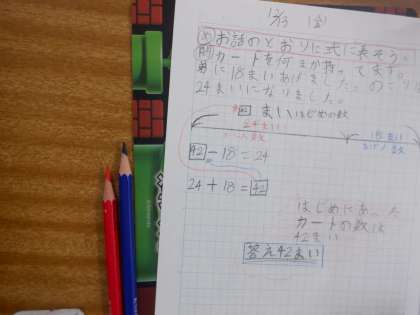 12/13 (金)
お話のとおりに式に表そう。
カードを何まいか持ってます。
弟に18まいあげました。のこり
24まいになりました。
まい はじめの数
24まい
18まい
42-18=24
24+18=42
はじめにあった
カードの数は
42まい
答え42まい